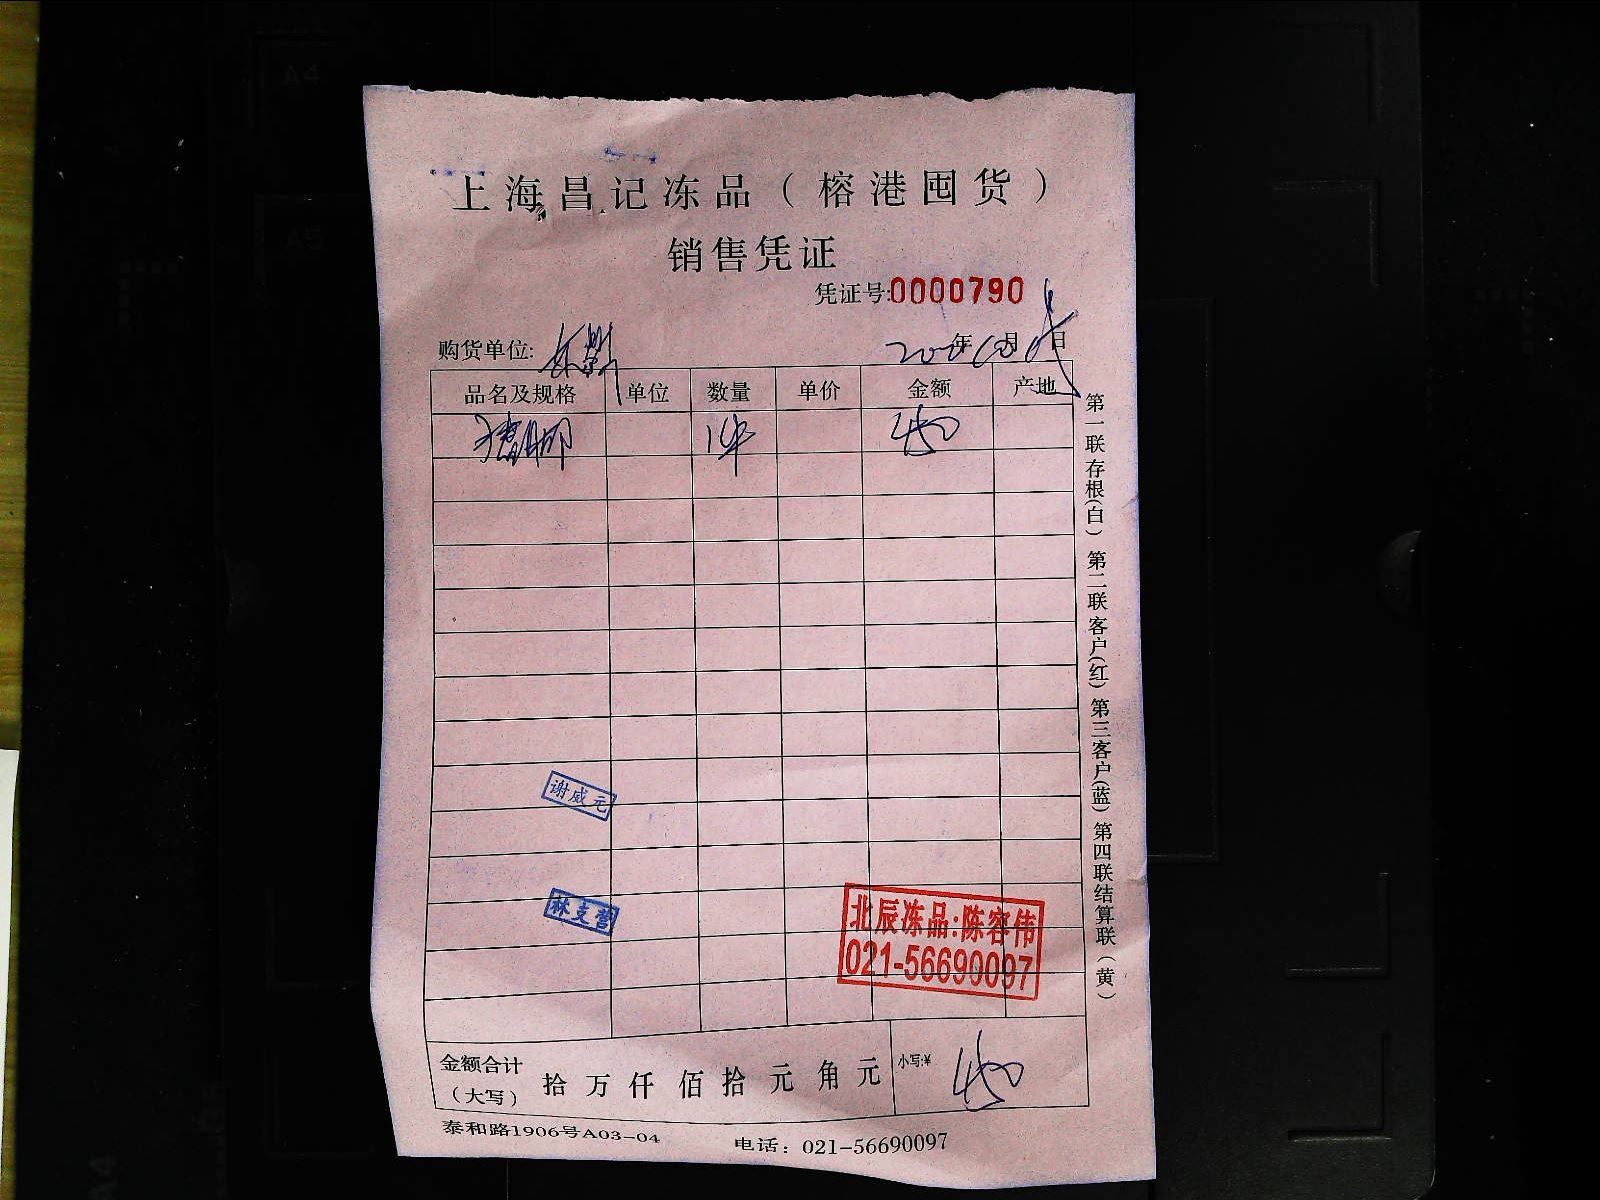 上海昌记冻品（榕港囤货）
销售凭证
凭证号:0000790
购货单位:
年 月 日
品名及规格 单位 数量 单价 金额 产地
猪脚 1件 450
谢威元
林支营
北辰冻品:陈容伟
021-56690097
金额合计
（大写） 拾 万 仟 佰 拾 元 角 元 小写:¥ 450
泰和路1906号A03-04 电话：021-56690097
第一联存根（白） 第二联客户（红） 第三客户（蓝） 第四联结算联（黄）